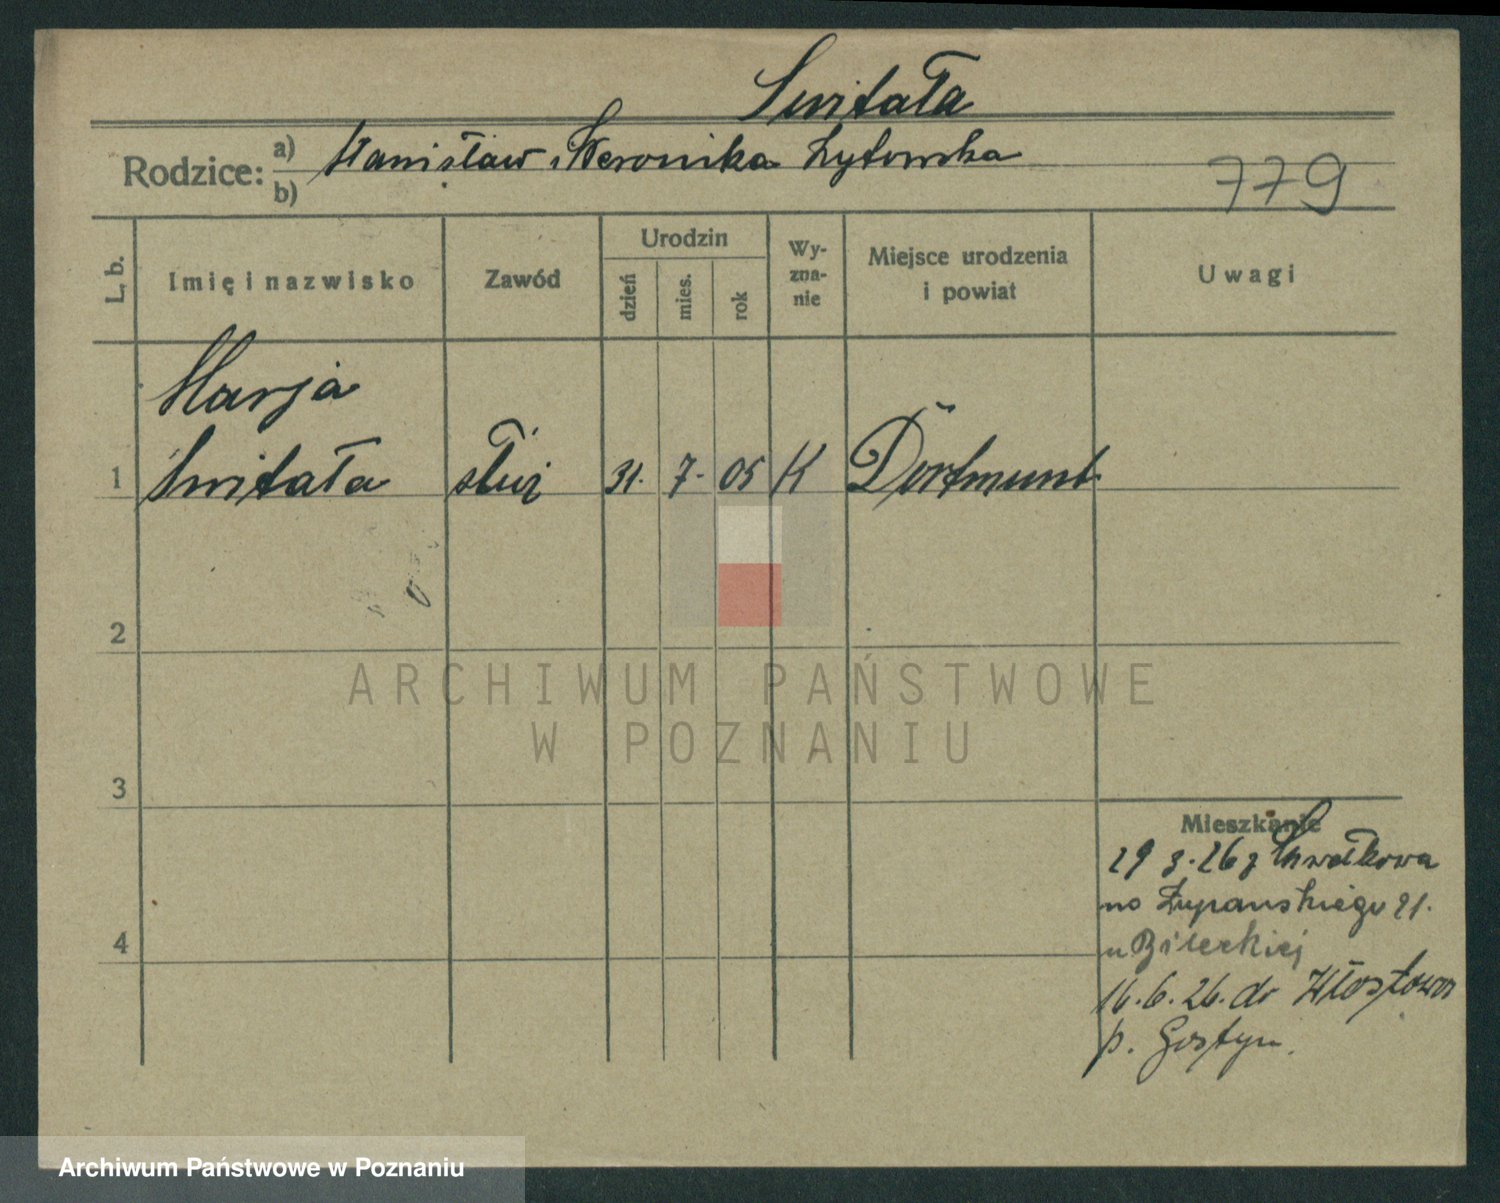 Switała
Rodzice:
a) Stanisław i Weronika Żytowska
b)
779
L. b.
Imię i nazwisko
Zawód
Urodzin
dzień
mies.
rok
Wy-
zna-
nie
Miejsce urodzenia
i powiat
Uwagi
Marja
1 Switała służ 31. 7. 05 K Dortmunt
2
3
4
Mieszkanie
29 3. 26 z Chwałkowa
na Żupańskiego 21.
u Bileckiej
16. 6. 26. do Włostowa
p. Gostyn.
ARCHIWUM PAŃSTWOWE
W POZNANIU
Archiwum Państwowe w Poznaniu